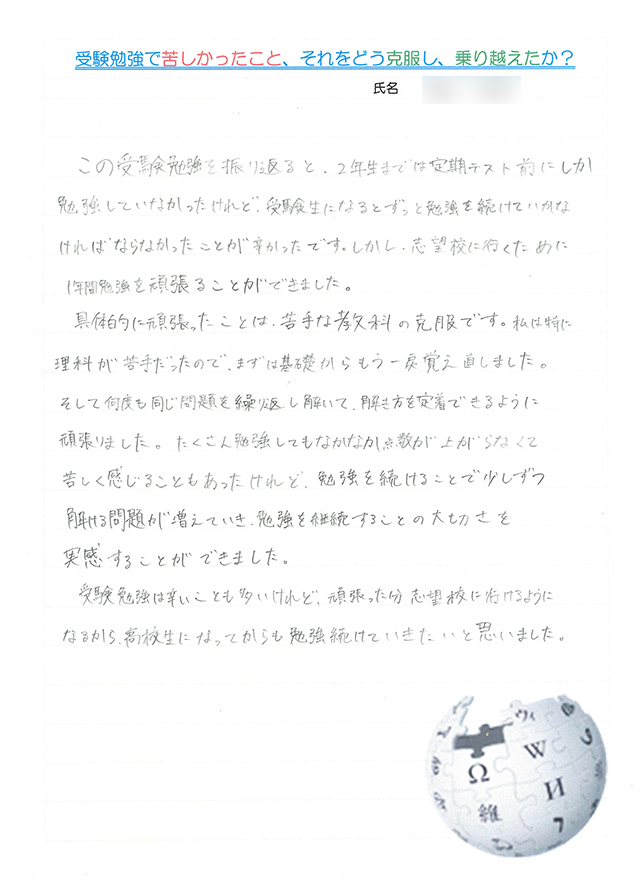 受験勉強で苦しかったこと、それをどう克服し、乗り越えたか？
氏名
この受験勉強を振り返ると、2年生までは定期テスト前にしか
勉強していなかったけれど、受験生になるとずっと勉強を続けていかな
ければならなかったことが辛かったです。しかし、志望校に行くために
1年間勉強を頑張ることができました。
具体的に頑張ったことは、苦手な教科の克服です。私は特に
理科が苦手だったので、まずは基礎からもう一度覚え直しました。
そして何度も同じ問題を繰り返し解いて、解き方を定着できるように
頑張りました。たくさん勉強してもなかなか点数が上がらなくて
苦しく感じることもあったけれど、勉強を続けることで少しずつ
解ける問題が増えていき、勉強を継続することの大切さを
実感することができました。
受験勉強は辛いことも多いけれど、頑張った分志望校に行けるように
なるから、高校生になってからも勉強続けていきたいと思いました。
ウィ
Ω W
維 И